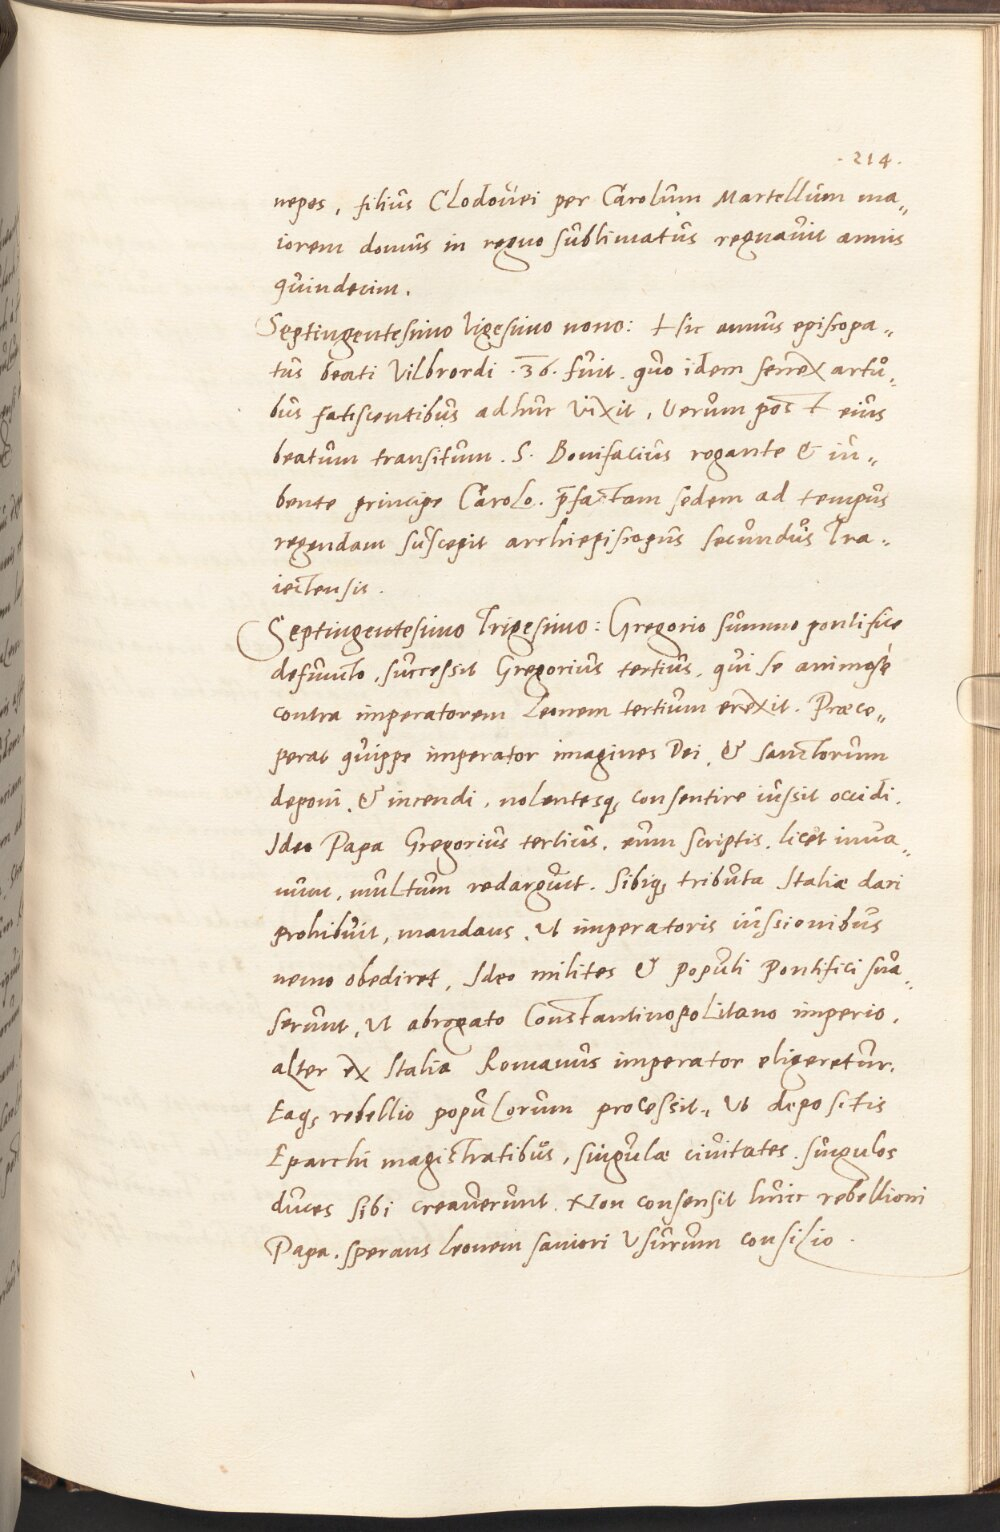 . 214 .
nepos, filius Clodovei per Carolum Martellum ma„
iorem domus in regno sublimatus regnavit annis
quindecim.
Septingentesimo vigesimo nono: Hic annus episcopa„
tus beati Vilbrordi .36. fuit. quo idem senex artu„
bus fatiscentibus adhuc vixit, verum post eius
beatum transitum. S. Bonifacius rogante & iu„
bente principe Carolo. p̄factam sedem ad tempus
regendam suscepit archiepiscopus secundus Tra„
iectensis.
Septingentesimo Trigesimo: Gregorio summo pontifice
defuncto, successit Gregorius tertius, qui se animosè
contra imperatorem Leonem tertium erexit. Præce„
perat quippe imperator imagines Dei, & sanctorum
deponi, & incendi, nolentesq; consentire iussit occidi.
Ideo Papa Gregorius tertius, eum scriptis, licet inva„
num, multum redarguit. Sibiq; tributa Italiæ dari
prohibuit, mandans, ut imperatoris iussionibus
nemo obediret, Ideo milites & populi Pontifici sua„
serunt, ut abrogato Constantinopolitano imperio,
alter ex Italia Romanus imperator eligeretur.
Eaq; rebellio populorum processit, ut depositis
Eparchi magistratibus, singulæ civitates, singulos
duces sibi creaverunt. Non consensit huic rebellioni
Papa, sperans Leonem saniori usurum consilio.